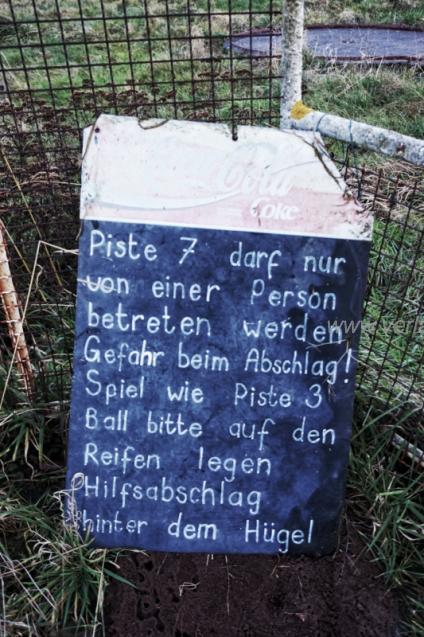 Coca-Cola
Coke
Piste 7 darf nur
von einer Person
betreten werden
Gefahr beim Abschlag!
Spiel wie Piste 3
Ball bitte auf den
Reifen legen
Hilfsabschlag
hinter dem Hügel